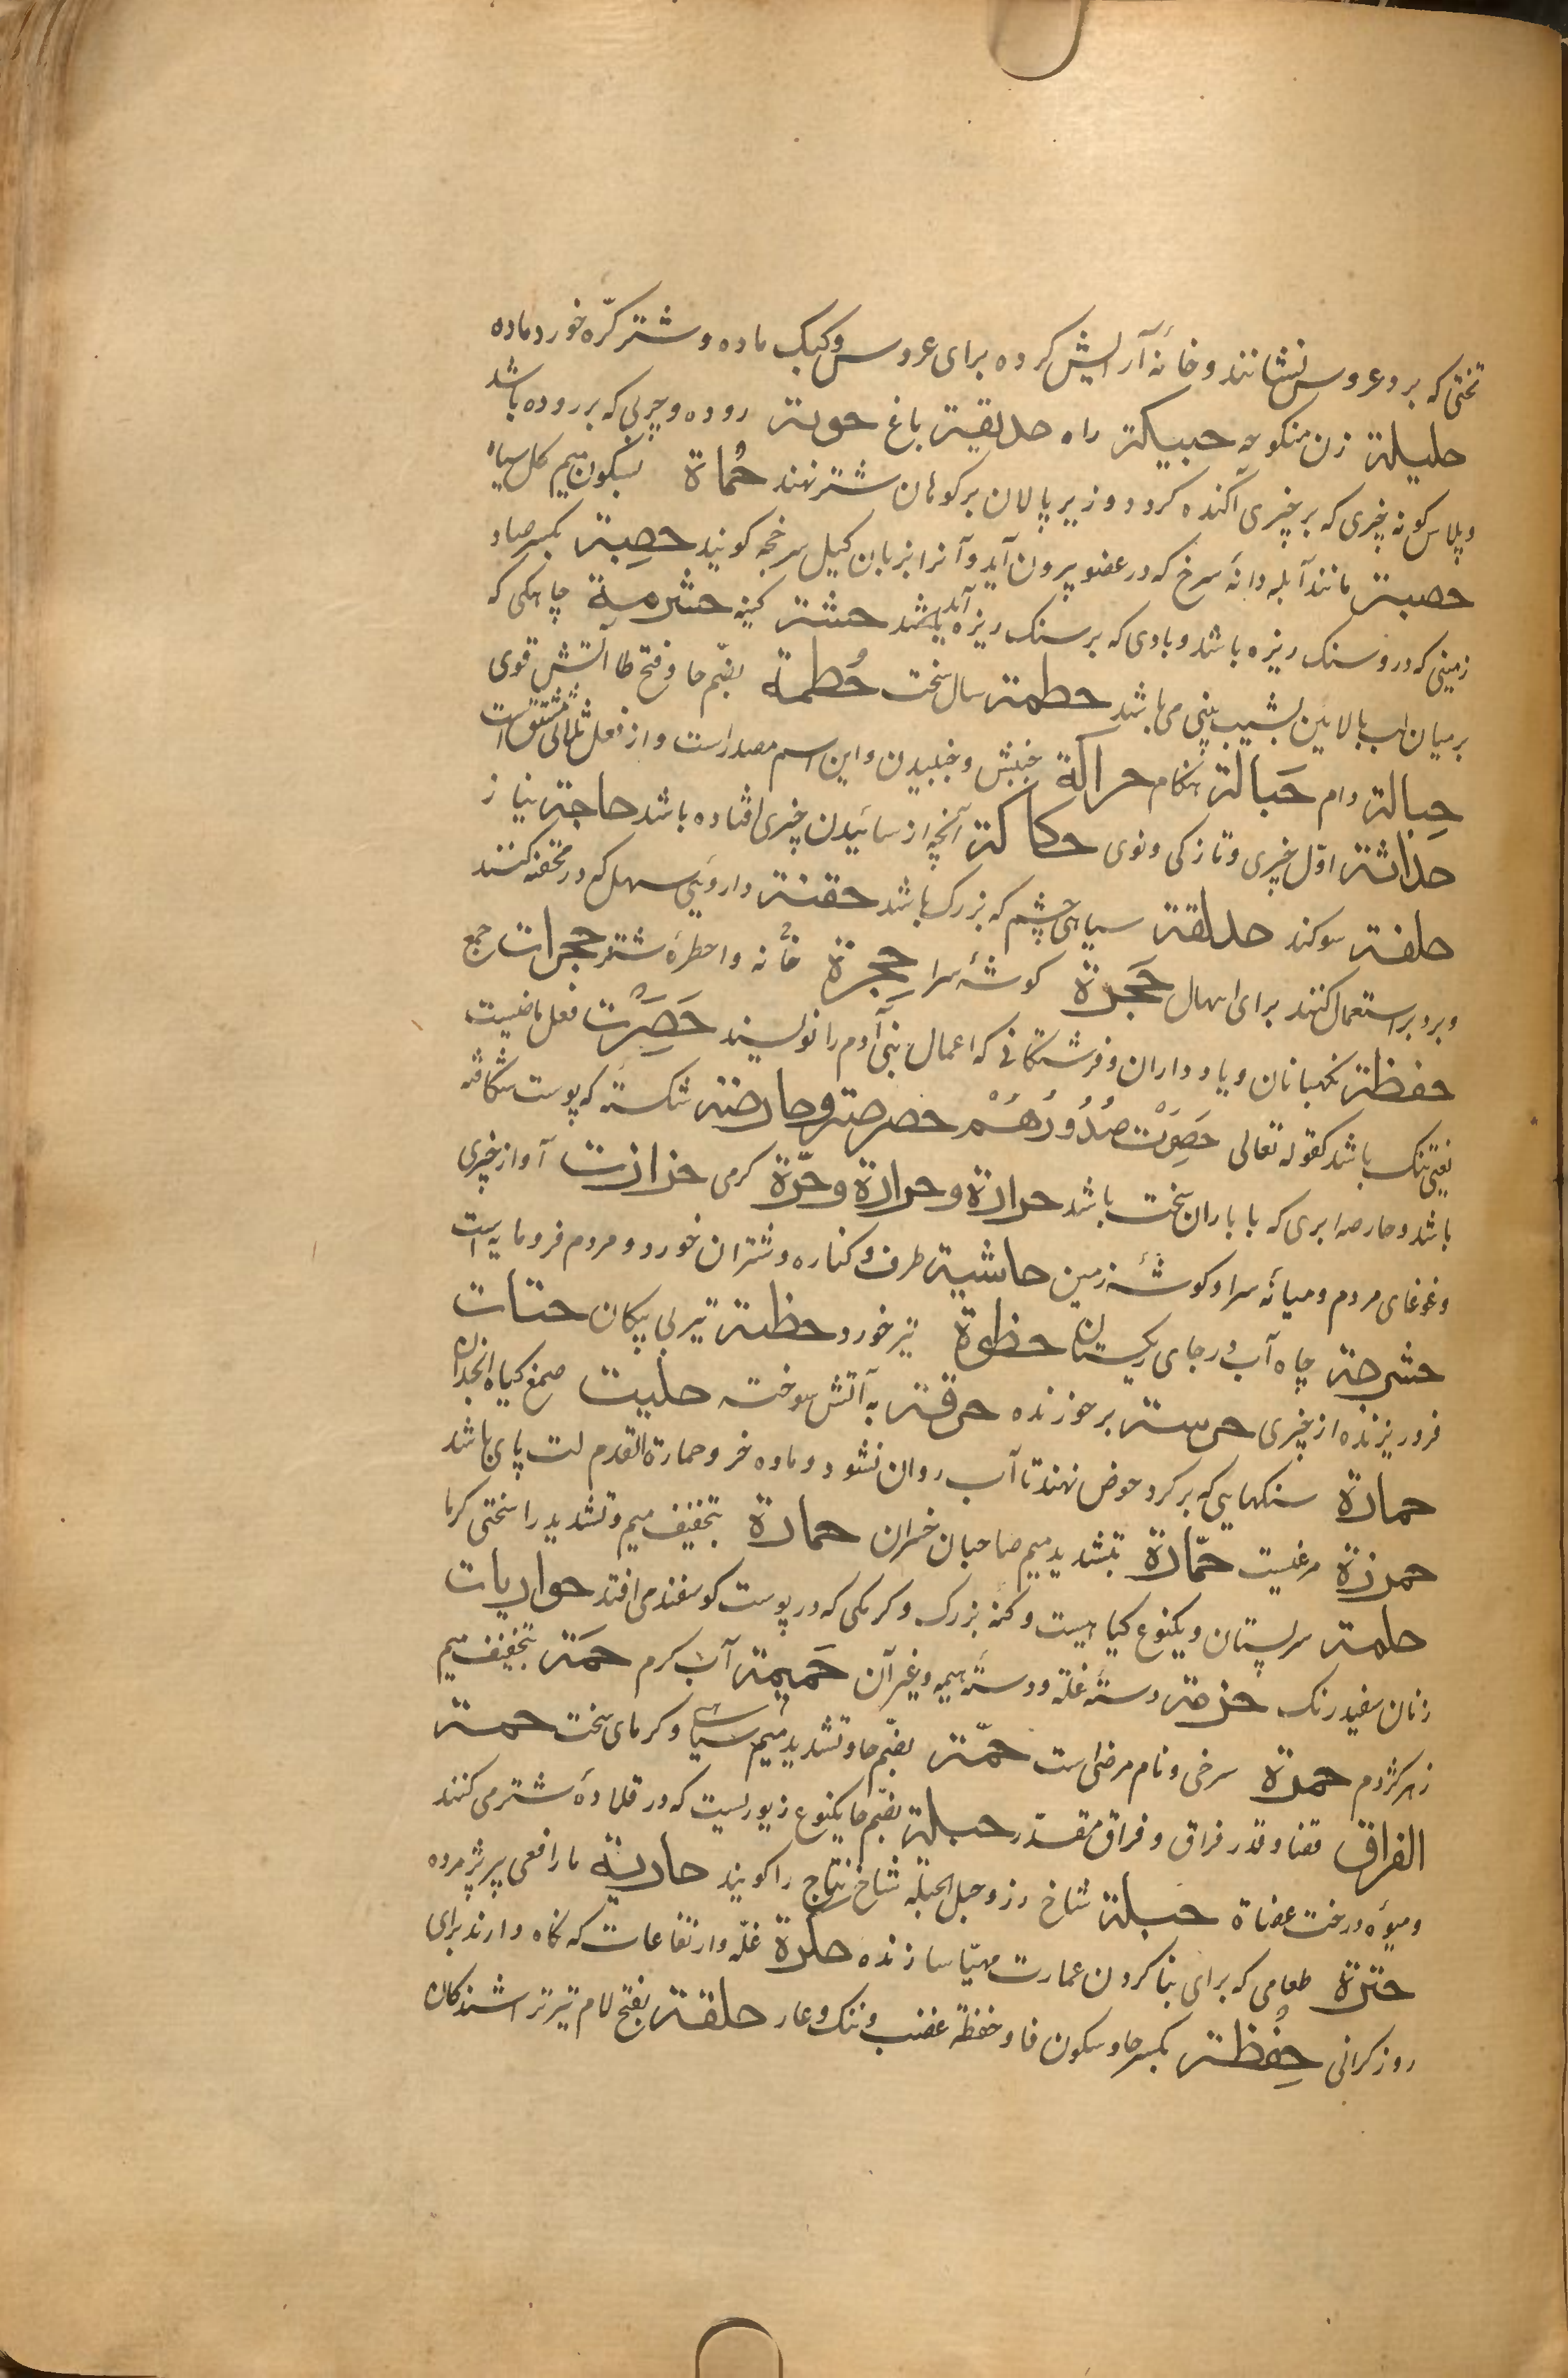 تختی که برو عروس نشانند و خانهٔ آرایش کرده برای عروس و کبک ماده و شتر کرّه خورد ماده
حلیلة زن منکوحه حبیکة راه حدیقة باغ حویة روده و چربی که بر روده باشد
و پلاس کونه چیزی که بر چیزی آکنده کرد و زیر پالان بر کوهان شتر نهند حُماة بسکون میم کل سیاه
حصبة مانند آبله دانهٔ سرخ که در عضو بیرون آید و آنرا بزبان کیل سرخجه کویند حصِبة بکسر صاد
زمینی که درو سنک ریزه باشد و بادی که بر سنک ریزه آید حشنة کینه حثرمة چاهکی که
بر میان لب بالائین بشیب بینی می باشد حطمة سال سخت حُطمة بضم حا و فتح طا آتش قوی
حِبالة دام حَبالة هنکام حراکة جنبش و جنبیدن و این اسم مصدر است و از فعل ثلاثی مشتق است
حداثة اوّل چیزی و تازکی و نوی حکاکة آنچه از سائیدن چیزی افتاده باشد حاجة نیاز
حلفة سوکند حدقة سیاهی چشم که بزرک باشد حقنة داروئی مسهل که در محقنه کنند
و برو بر استعمال کنند برای اسهال حَجرة کوشهٔ سرا حجرة خانه و احظرهٔ شتر حجرات جمع
حفظة نکهبانان و یاد داران و فرشتکانی که اعمال بنی آدم را نویسند حَصِرَت فعل ماضیست
یعنی تنک باشد کقوله تعالی حَصِرَتْ صُدُورُهُمْ حصرصة و حارصة شکسته که پوست شکافته
باشد و حارصه ابری که با باران سخت باشد حرارة و حرارة و حرّة کرمی حزازت آواز چیزی
و غوغای مردم و میانهٔ سرا و کوشهٔ زمین حاشیة طرف و کناره و شتران خورد و مردم فرومایه است
حشرجة چاه آب در جای ریکستان حظوة تیر خورد حظیة تیر بی پیکان حتات
فروریزنده از چیزی حرستة بر خورنده حرقة به آتش سوخته حلیت صمغ کیاه انجدان
حمارة سنکهایی که بر کرد حوض نهند تا آب روان نشود و ماده خر و حمارة القدم لت پای باشد
حمرزة مرغیست حمّارة بتشدید میم صاحبان خران حمارة بتخفیف میم و تشدید را سختی کرما
حلمة سر پستان و یکنوع کیاهیست و کنه بزرک و کرمکی که در پوست کوسفند می افتد حواریات
زنان سفید رنک حزمة دستهٔ غلّه و دستهٔ هیمه و غیر آن حَمیمة آب کرم حمَة بتخفیف میم
زهر کژدم حمرة سرخی و نام مرضی است حمّة بضم حا و تشدید میم سیاهی و کرمای سخت حمة
الفراق قضا و قدر فراق و فراق مقدّر حبلة بضم حا یکنوع زیوریست که در قلادهٔ شتر می کنند
و میوه درخت عضاة حبلة شاخ رز و حبل الحبلة شاخ نتاج را کویند حاریة مار افعی پیر پژمرده
حترة طعامی که برای بنا کردن عمارت مهیّا سازنده حکرة غلّه و ارتفاعات که نکاه دارند برای
روز کرانی حِفظة بکسر حا و سکون فا و حفظة غضب و ننک و عار حلقة بفتح لام تیر تراشندکان